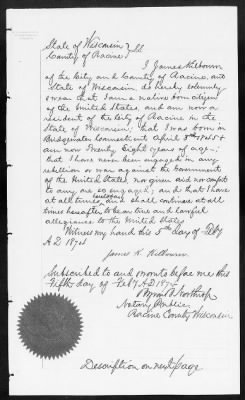 State of Wisconsin } ss
County of Racine }
I James Kilbourn
of the City and County of Racine, and
State of Wisconsin, do hereby solemnly
swear that I am a native born citizen
of the United States, and am now a
resident of the City of Racine in the
State of Wisconsin; that I was born in
Bridgewater Connecticut April
am now Twenty Eight years of age;
that I have never been engaged in any
rebellion or war against the Government
of the United States, nor given aid or comfort
to any one so engaged, and that I have
at all times and shall continue at all
times hereafter to bear true and lawful
allegiance to the United States.
Witness my hand this 5th day of Feby
A D 1874
James K. Kilbourn.
Subscribed to and sworn to before me this
Fifth day of Feby A.D 1874
Northrop
Notary Public
Racine County Wisconsin
Description on next page